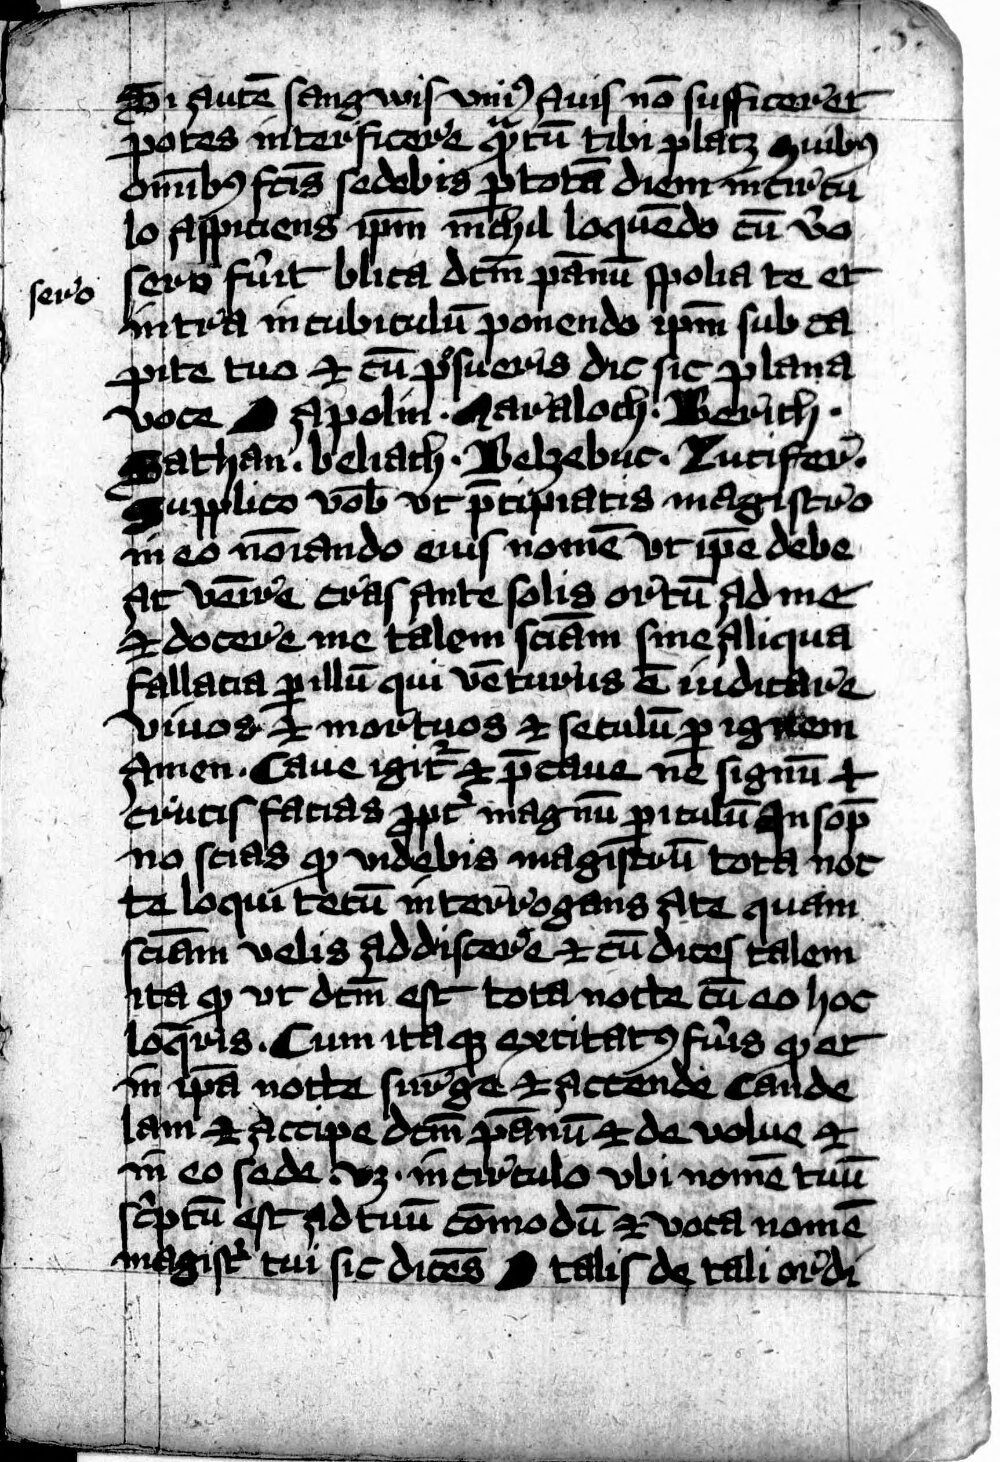 Si autē sangwis vniꝰ auis nō sufficeret
potes interficere qͣtū tibi placꝫ Quibꝰ
oīnibꝰ fc̄is sedebis ꝑ totā diem in circu
lo aspiciens ip̄m nichil loquēdo cū v̉o
sero
sero fūit plica dc̄m pānū spolia te et
intra in cubiculū ponendo ip̄m sub ca
pite tuo et cū posueris dic sic plana
voce O Apolin · Maraloch · Berith ·
Sathan · beliath · Belzebuc · Lucifer ·
Supplico vob̄ vt p̄cipiatis magistro
in eo nōiando eius nomē vt ip̄e debe
at venire cras ante solis ortū ad me
et docere me talem sciām sine aliqua
fallacia ꝑ illū qui vēturus ē iudicare
viuos et mortuos et seculū ꝑ ignem
Amen · Caue igit̉ et p̄caue ne signū ⁊
crucis facias ꝓpt̉ magnū ꝑiculū In sop̄
no scias ꝙ videbis magistrū tota noc
te loqui tecū interrogans a te quam
sciām velis addiscere et cū dices talem
ita ꝙ vt dc̄m est tota nocte cū eo hoc
loq̄ris · Cum itaqꝫ excitatꝰ fūis ꝙ et
in ip̄a nocte surge et accende cande
lam et accipe dc̄m pānū et de volue et
in eo sede · vꝫ · in circulo vbi nomē tuū
sc̉ptū est ad tuū cōmodū et voca nomē
magist̉ tui sic dicēs O talis de tali ordi